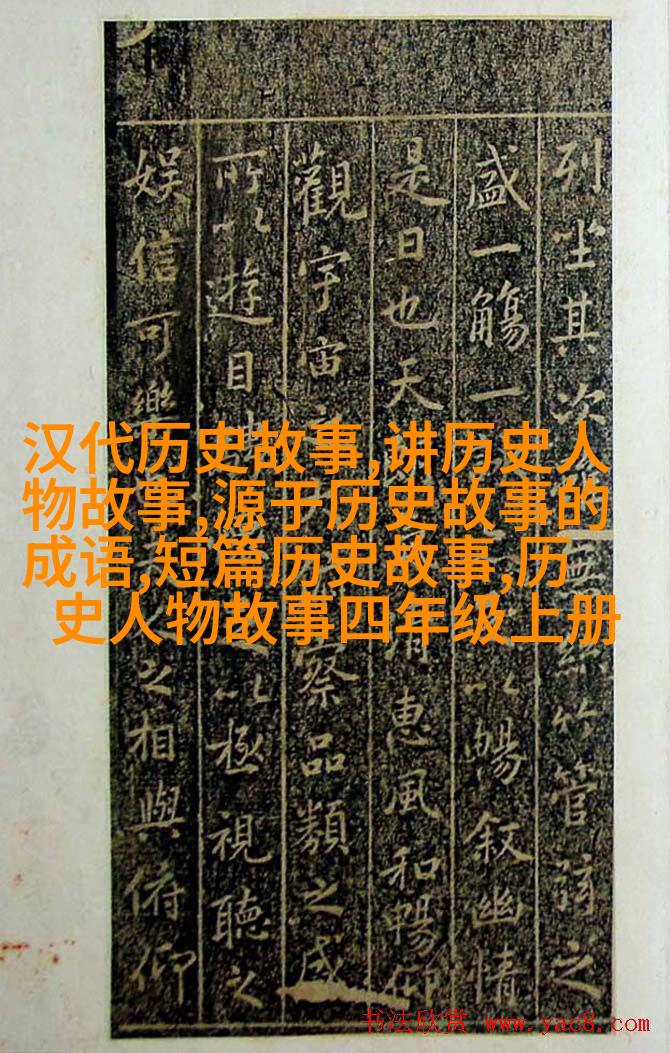 列坐其次無絲竹管弦之
盛一觴一以暢叙幽情
是日也天惠風和暢仰
觀宇宙察品類之盛
所以遊目以極視聽之
娱信可樂之相與俯仰
汉代历史故事,讲历史人
物故事,源于历史故事的
成语,短篇历史故事,历
史人物故事四年级上册
书法欣赏 www.yac8.com